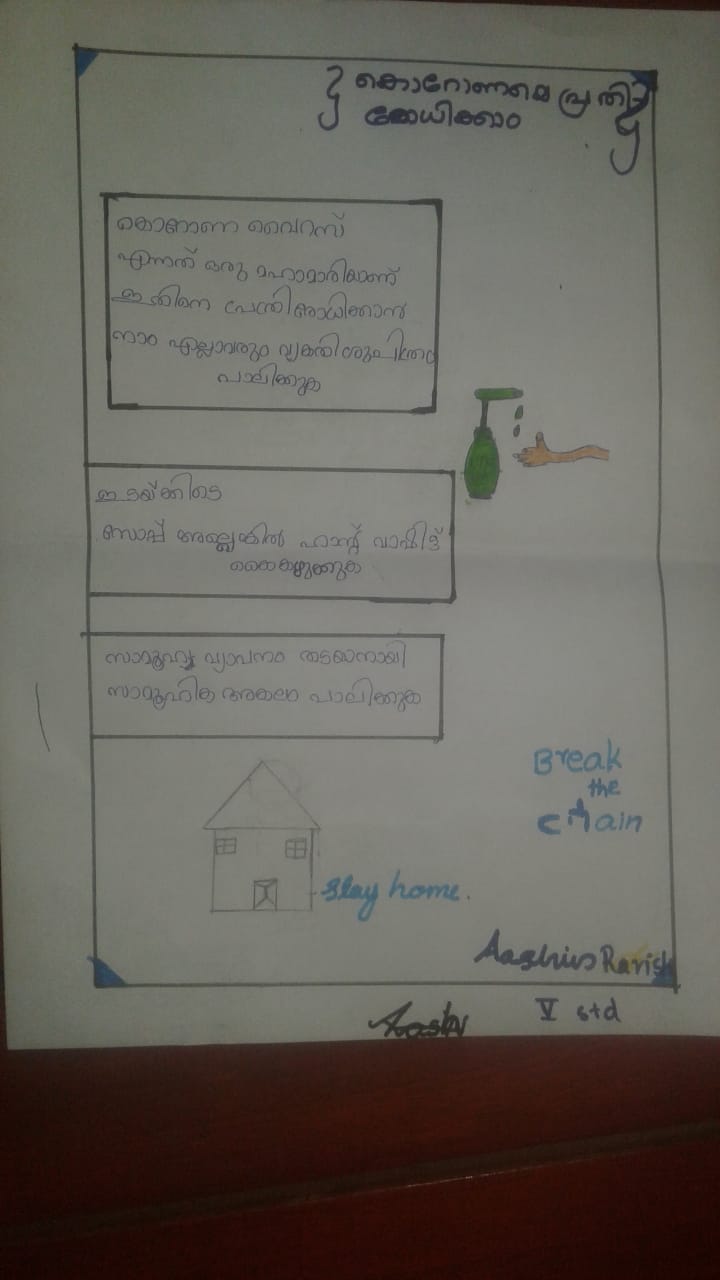 കൊറോണയെ പ്രതി
രോധിക്കാം
കൊറോണ വൈറസ്
എന്നത് ഒരു മഹാമാരിയാണ്
ഇതിനെ
നാം എല്ലാവരും വ്യക്തി ശുചിത്വം
പാലിക്കുക
ഇടയ്ക്കിടെ
സോപ്പ് അല്ലെങ്കിൽ ഹാന്റ് വാഷിട്ട്
കൈകഴുകുക
സാമൂഹ്യ വ്യാപനം തടയാനായി
സാമൂഹിക അകലം പാലിക്കുക
Break
the
chain
Stay home.
Ravish
V std